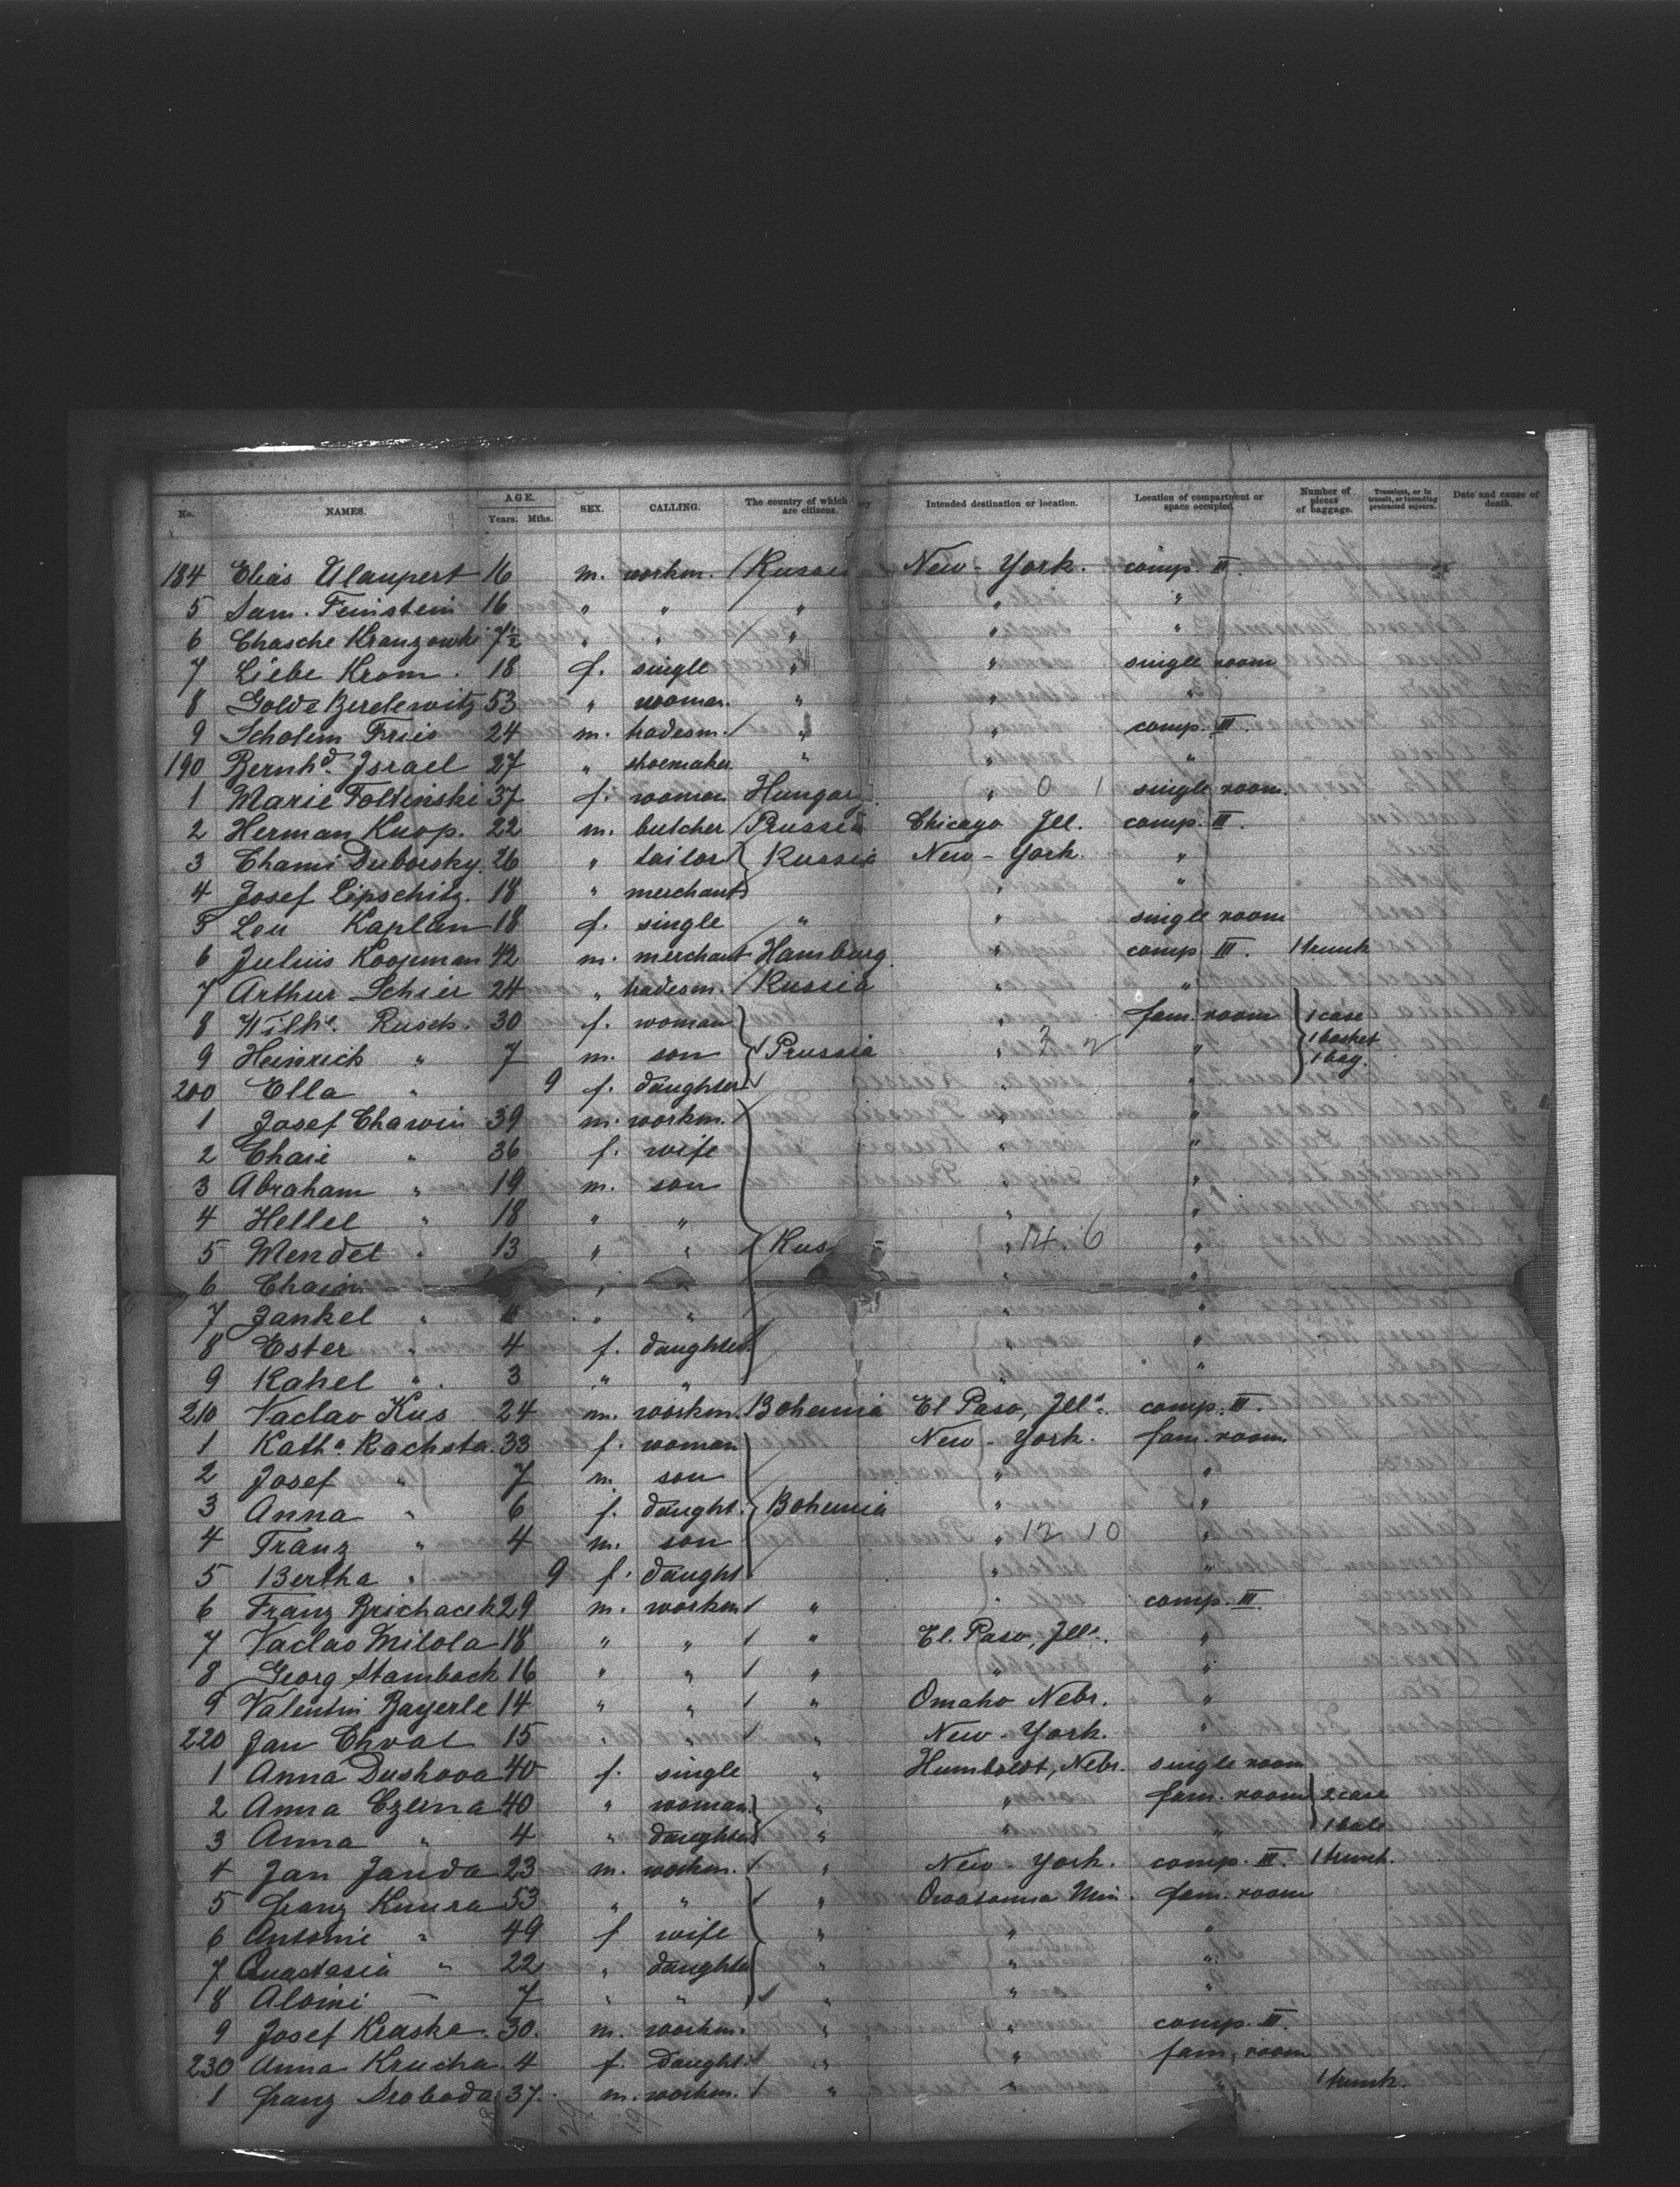 No. NAMES. AGE. Years. Mths. SEX. CALLING. The country of which are citizens. Intended destination or location. Location of compartment or space occupied. Number of pieces of baggage. Transient, or in transit, or intending protracted sojourn. Date and cause of death.
184 Elias Ulanpert 16 m. workm. Russia New-York. comp. III.
5 Sam. Feinstein 16 " " " " "
6 Chasche Kranzowki 7½ " " " " "
7 Liebe Krom. 18 f. single " " single room
8 Golde Berelewitz 53 " woman. " " "
9 Scholem Fries 24 m. tradesm. " " comp. III.
190 Bernhd. Israel 27 " shoemaker " " "
1 Marie Toltinski 37 f. woman Hungar " 0 1 single room.
2 Herman Knop. 22 m. butcher Prussia Chicago Ill. comp. III.
3 Chami Duborsky. 26 " tailor Russia New-York. "
4 Josef Lipschitz. 18 " merchant " "
5 Lou Kaplan 18 f. single " " single room
6 Julius Koopman 42 m. merchant Hamburg. " comp. III. 1 trunk
7 Arthur Schier 24 " tradesm. Russia " "
8 Wilhe. Rusch. 30 f. woman " fam. room 1 case
9 Heinrich " 7 m. son Prussia " 3 2 " 1 basket 1 bag.
200 Ella " 9 f. daughter " "
1 Josef Charvin 39 m. workm. " "
2 Chaie " 36 f. wife " "
3 Abraham " 19 m. son " "
4 Hellel " 18 " " " "
5 Mendel " 13 " " Rus " 14. 6 "
6 Chaim " " " "
7 Jankel " " " " "
8 Ester " 4 f. daughter " "
9 Rahel " 3 " " " "
210 Vaclav Kus 24 m. workm. Bohemia El Paso, Ills. comp. III.
1 Katha Rachsta. 33 f. woman New-York. fam. room
2 Josef " 7 m. son " "
3 Anna " 6 f. daught. Bohemia " "
4 Franz " 4 m. son " 12 10 "
5 Bertha " 9 f. daught " "
6 Franz Brichacek 29 m. workm " " comp. III.
7 Vaclav Milola 18 " " " El. Paso, Ills. "
8 Georg Stamboch 16 " " " " "
9 Valentin Bayerle 14 " " " Omaho Nebr. "
220 Jan Chval 15 " " " New-York. "
1 Anna Dushova 40 f. single " Humboldt, Nebr. single room
2 Anna Czerna 40 " woman. " " fam. room 2 case
3 Anna " 4 " daughter " " " 1 bale
4 Jan Janda 23 m. workm. " New-York. comp. III. 1 trunk.
5 Franz Kuura 53 " " " Owatonna Min. fam. room
6 Antonie " 49 f wife " " "
7 Anastasia " 22 " daughter " " "
8 Aloini " 7 " " " " "
9 Josef Kraska. 30. m. workm. " " comp. III.
230 Anna Krucha. 4 f. daught. " " fam. room
1 Franz Svoboda 37. m. workm. " " " 1 trunk.